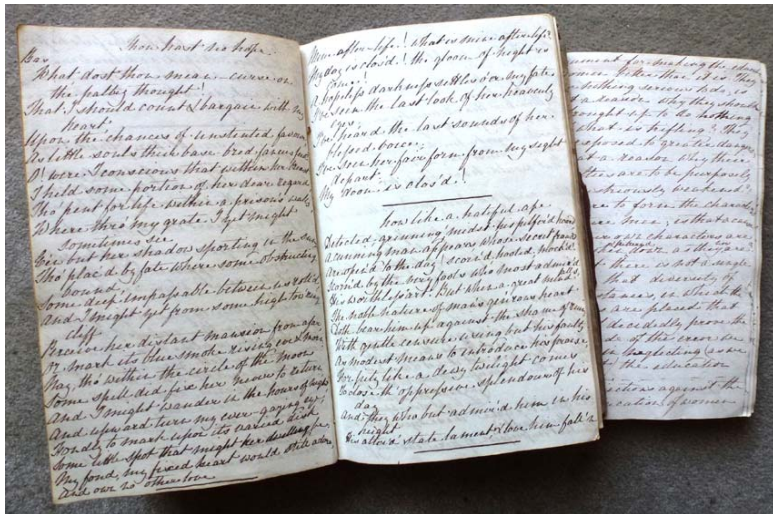 Thou hast no hope.
Bas
What dost thou mean - curse on
the paltry thought!
That I should count & bargain with my
heart,
Upon the chances of unstinted favour
As little souls their base bred fancies feed
O! were I conscious that within her breast
I held some portion of her dear regard
Tho' pent for life within a prison's walls
Where thro' my grate I yet might
sometimes see
E'en but her shadow sporting in the sun
Tho' plac'd by fate where some obstructing
bound,
Some deep impassable between us roll'd
And I might yet from some high tow'ring
Cliff
Perceive her distant mansion from afar
Or mark its blue smoke rising eve & morn
Nay, tho' within the circle of the moon
Some spell did fix her never to return
And I might wander in the hours of night
And upward turn my ever-gazing eye
Fondly to mark upon its varied disk
Some little spot that might her dwelling be,
My fond, my fixed heart would still adore
And own no other love
Now after-life! what is mine after-life?
My day is clos'd! the gloom of night is
come!
A hopeless darkness settles o'er my fate
I've seen the last look of her heavenly
eyes,
I've heard the last sounds of her
blessed voice;
I've seen her fair form from my sight
depart:
My doom is clos'd!
how like a hateful ape
Detected, grinning midst his pilfer'd hoard
A cunning man appears whose secret frauds
Are op'd to the day! scoff'd, hooted, mock'd
Scorn'd by the very fools who most admir'd
His worthless art. But when a great mind falls,
The noble nature of man's gen'rous heart
Doth bear him up against the shame of ruin
With gentle censure using but his faults
As modest means to introduce his praise
For pity like a dewy twilight comes
To close th' oppressive splendour of his
day
And they who but admir'd him in his
height
His alter'd state lament, & love him fall'n
for making the
women better than it is. They
nothing serious to do, is
a reason why they should
brought up to do nothing
what is trifling? They
exposed to greater dangers
a reason why their
are to be purposely
weakened?
to force the
men, is that a
own characters are
as they are?
there is not a single
that diversity of
in which the
are placed that
decidedly prove the
of the error
in neglecting
the education
against the
education of women